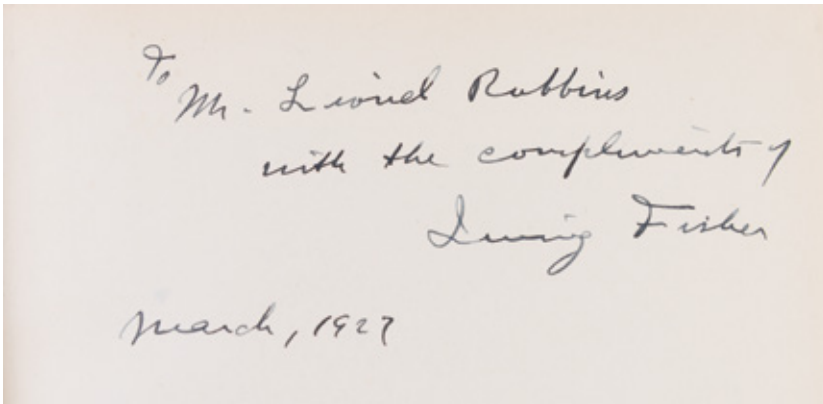 To
Mr. Lionel Robbins
with the compliments of
Irving Fisher
March, 1927